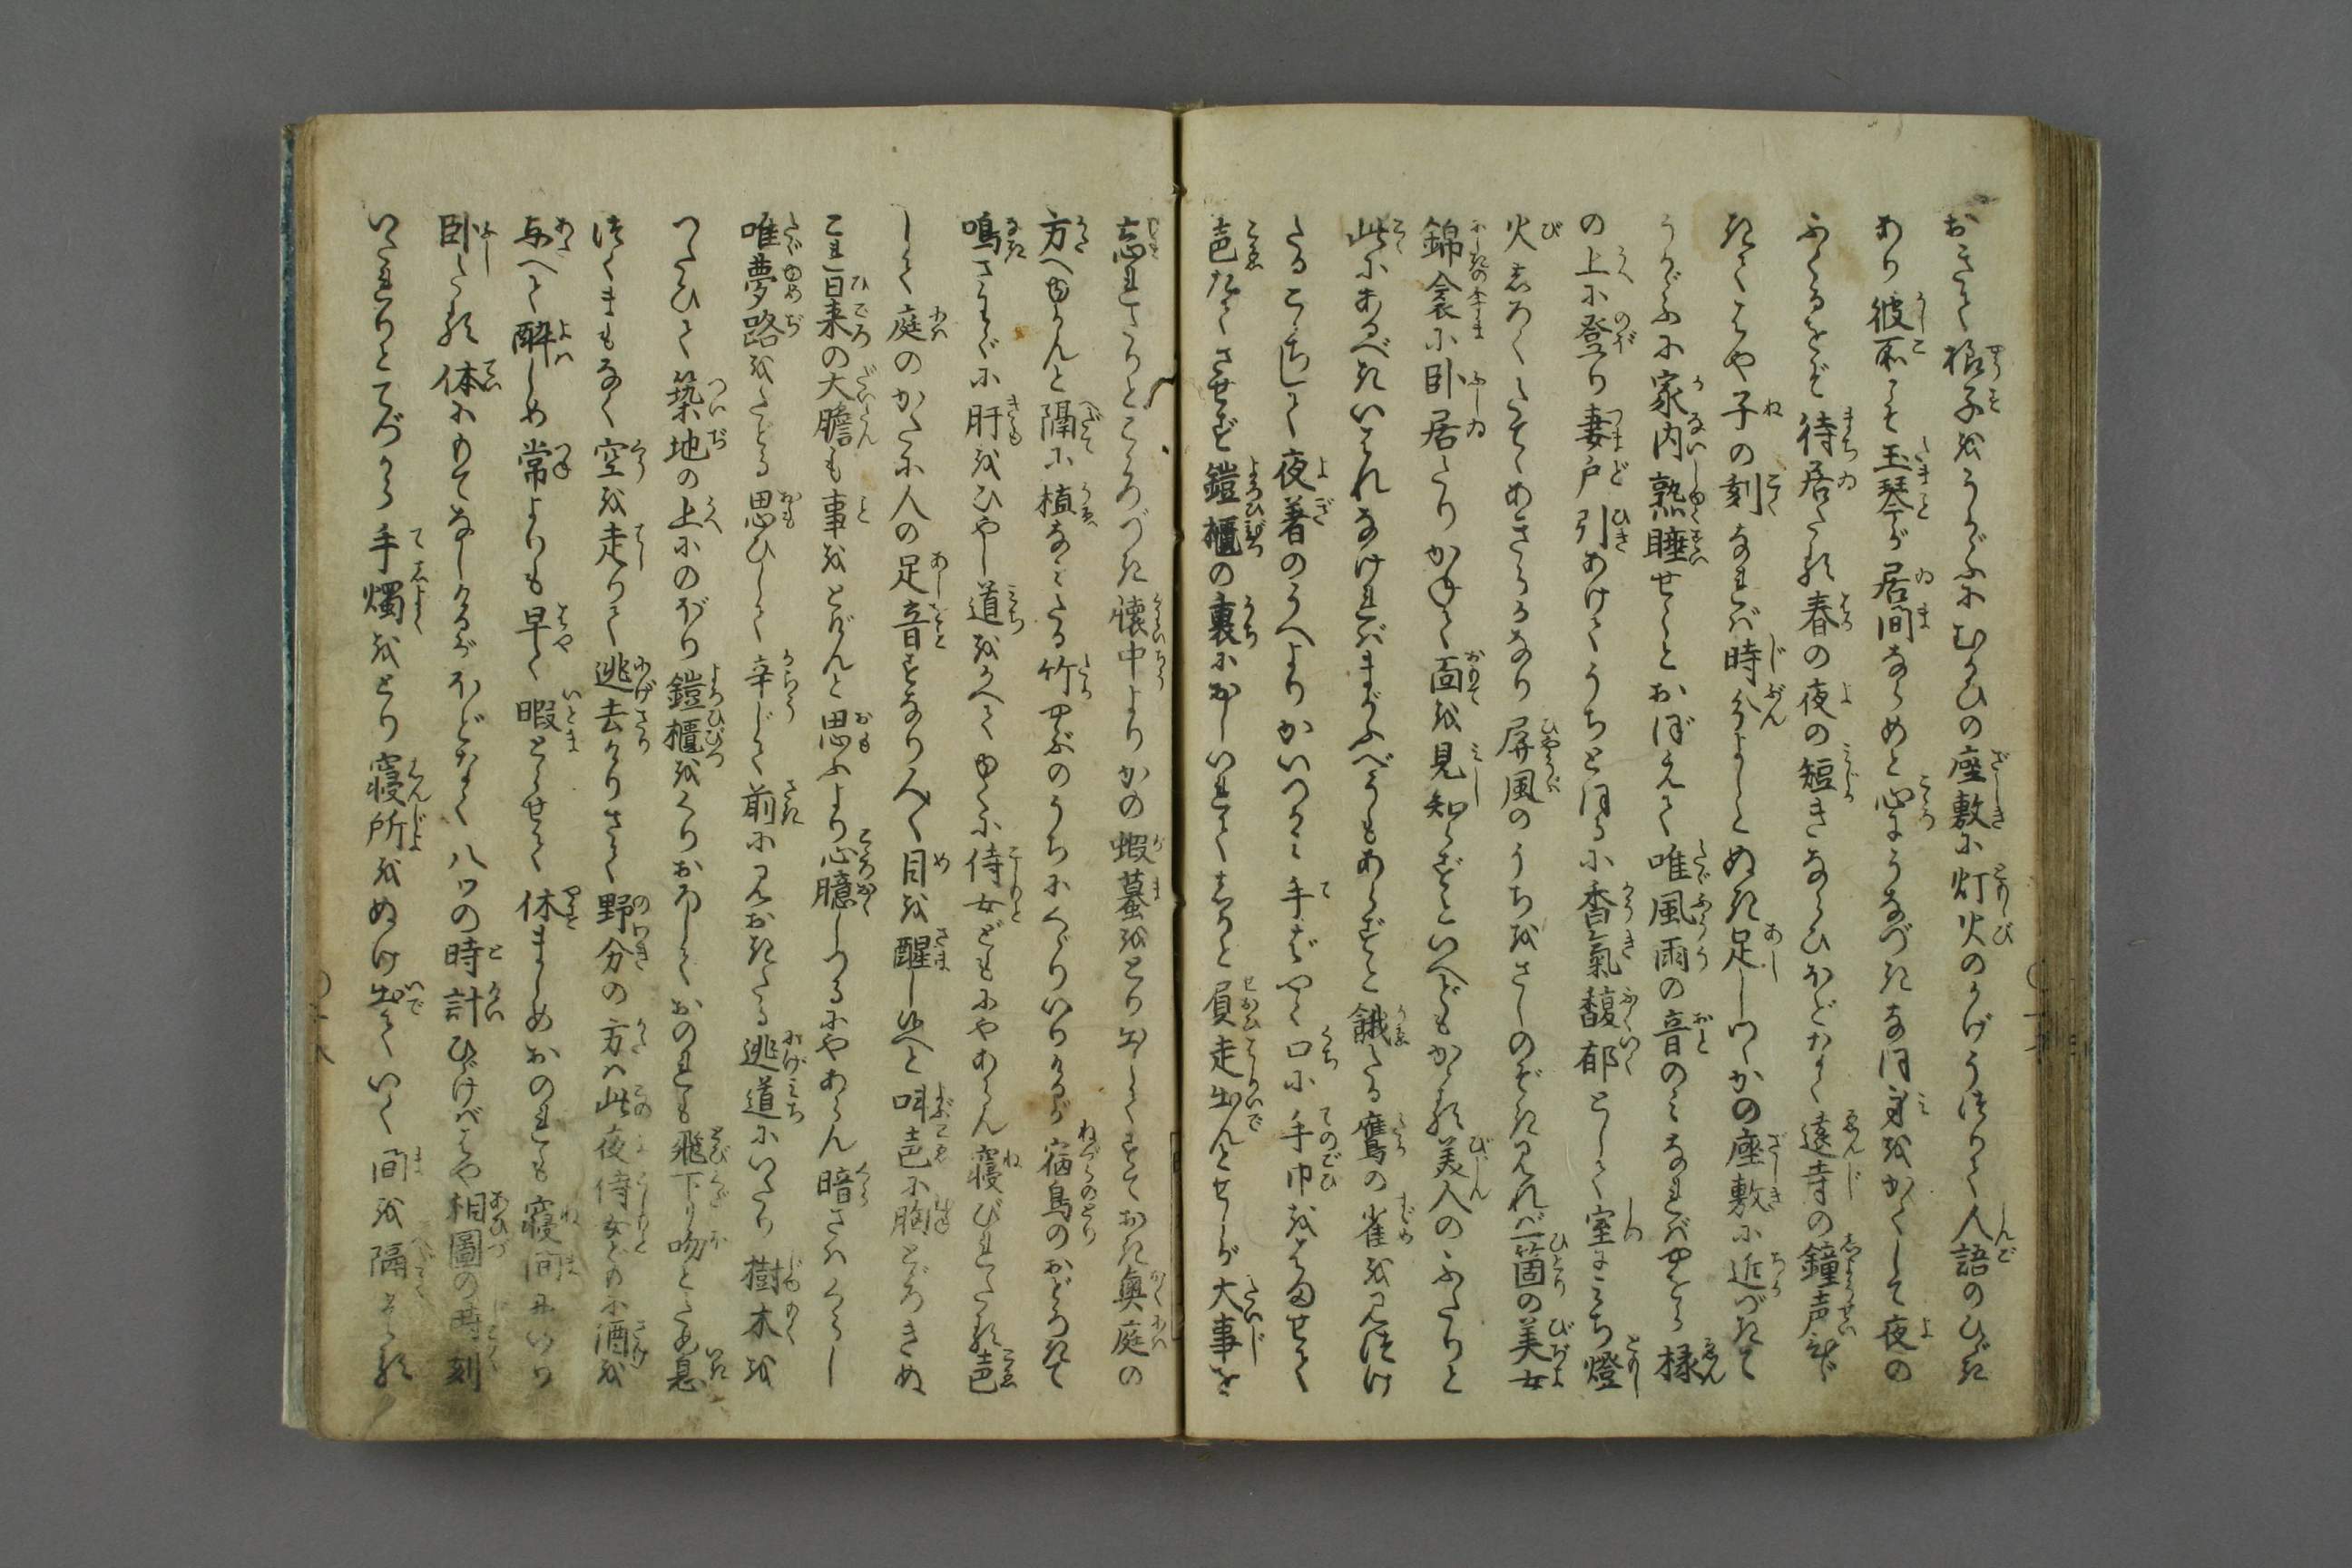 おきて様子をうかゞふにむかひの座敷に灯火のかげうつりて人語のひゞき
あり彼所こそ玉琴が居間ならめと心にうなづきなほ身をかくして夜の
ふくるをぞ待居たる春の夜の短きならひほどなく遠寺の鐘声
きくにはや子の刻なれば時分よしとぬき足しつゝかの座敷に近づきて
うかゞふに家内熟睡せしとおぼえて唯風雨の音のみなればやをら椽
の上に登り妻戸引あけてうちとほるに香気馥郁として室にみち燈
火しろくたてゝあきらかなり屏風のうちをさしのぞき見れば一箇の美女
錦衾に卧居たりかねて面を見知らずといへどもかゝる美人のふたりと
此にあるべきいはれなければまがふべうもあらずと餓たる鷹の雀を見つけ
たるこゝちして夜着のうへよりかいつかみ手ばやく口に手巾をはませて
声たてさせず鎧櫃の裏におしいれてしかと負走出んとせしが大事を
忘れたりところづき懐中よりかの蝦蟇をとり出してすておき奥庭の
方へゆかんと隔に植なみたる竹やぶのうちにくゞりいりけるが宿鳥のおどろきて
鳴さわぐに肝をひやし道をかへてゆくに侍女どもにやあらん寝びれたる声
して庭のかたに人の足音すなり人々目を醒し候へと呼声に胸とゞろきぬ
これ日来の大膽も事をとげんと思ふより心臆しつるにやあらん暗さはくらし
唯夢路をたどる思ひして辛じて前に見おきたる逃道にいたり樹木を
つたひて築地の上にのぼり鎧櫃をくりおろしておのれも飛下り吻とため息
つくまもなく空を走りて逃去けりさて野分の方は此夜侍女どもに酒を
与へて酔しめ常よりも早く暇とらせて休ましめおのれも寝間にいり
卧たる体にもてなしけるがほどなく八ツの時計ひゞけばはや相圖の時刻
いたれりとてづから手燭をとり寝所をぬけ出ていく間を隔たる